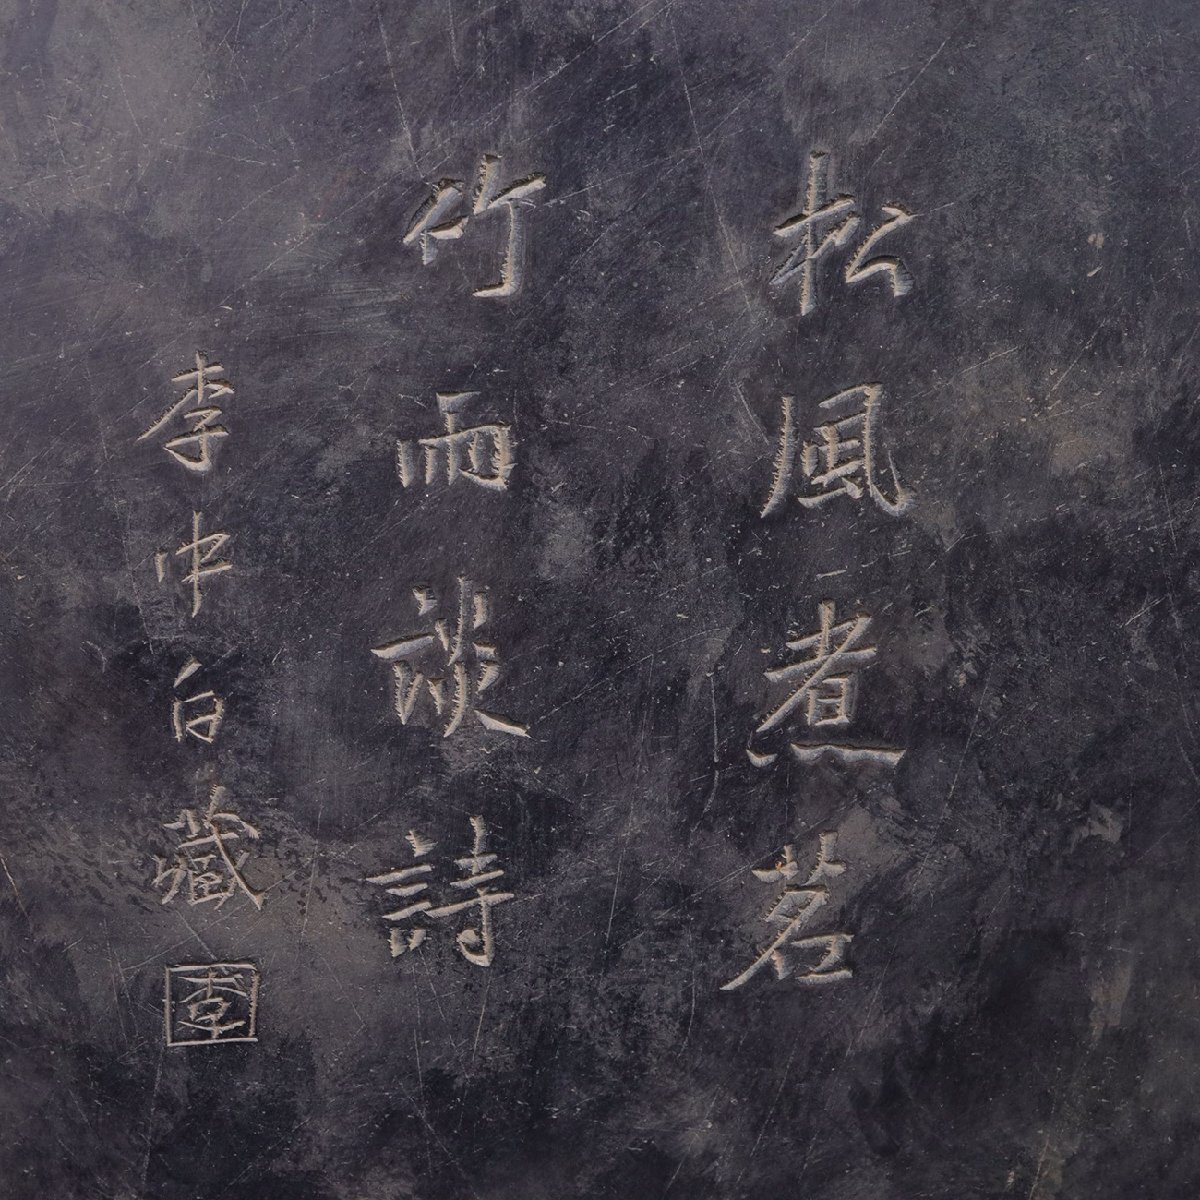 松風煮茗
竹雨談詩
李中白藏